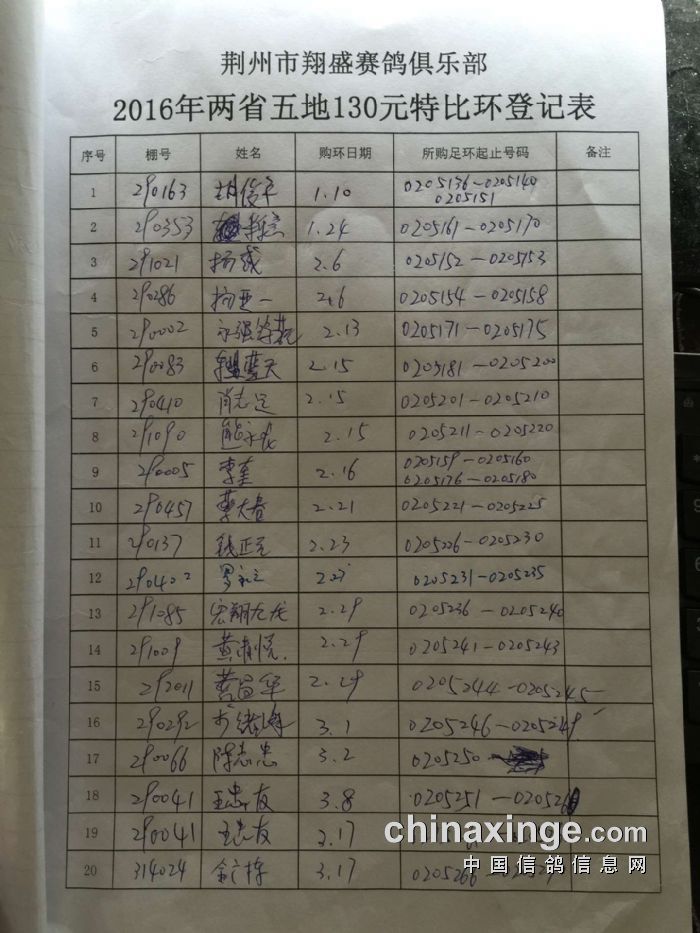 荆州市翔盛赛鸽俱乐部
2016年两省五地130元特比环登记表
序号 棚号 姓名 购环日期 所购足环起止号码 备注
1 290163 1.10 0205136-0205140
0205151
2 290353 1.24 0205161-0205170
3 291021 杨威 2.6 0205152-0205153
4 290286 2.6 0205154-0205158
5 290002 2.13 0205171-0205175
6 290083 蓝天 2.15 0205181-0205200
7 290410 肖志远 2.15 0205201-0205210
8 291090 2.15 0205211-0205220
9 290005 李奎 2.16 0205159-0205160
0205176-0205180
10 290457 2.21 0205221-0205225
11 290137 钱正 2.23 0205226-0205230
12 290402 0205231-0205235
13 291085 宏翔龙龙 2.29 0205236-0205240
14 291009 黄清悦 2.29 0205241-0205243
15 292011 黄昌华 2.29 0205244-0205245
16 290292 3.1 0205246-0205249
17 290066 陈志忠 3.2 0205250
18 290041 王忠友 3.8 0205251-020526
19 290041 王忠友 3.17
20 314024 3.17 0205266-
chinaxinge.com
中国信鸽信息网